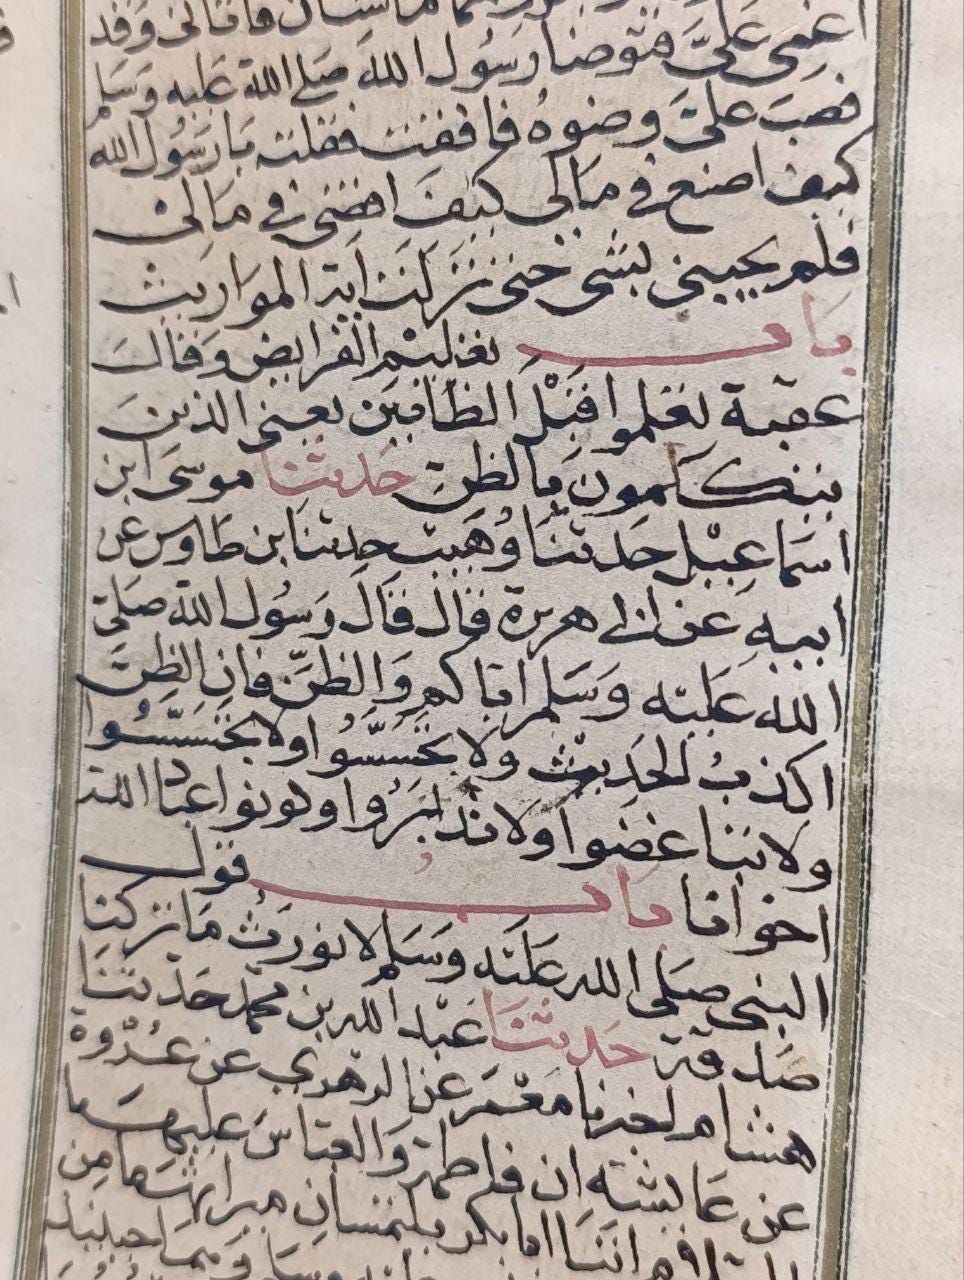 ماشيان فاتاني وقد
اغمي علىَّ فتوضا رَسُول الله صَلى الله عَليه وَسَلم
فصبَ علىَّ وضوءه فافقت فقلت يارَسُول الله
كيف اصنع في مَالي كيفَ اقضي في مَالي
فلم يجبني بشي حتى نزلت اية المواريث
بَاب تعليم الفرايض وَقالَ
عقبة تعلموا قبْلَ الظانين يعني الذين
يتكلمون بالظن حَدثنا موسىَ ابن
اسمَاعيْل حَدثنَا وُهَيب حدثنا بن طاوس عن
ابيهِ عن ابي هريرة قال قَالَ رَسُول الله صَلى
الله عَليْه وَسَلم اياكم وَالظنَّ فان الظنَ
اكذبُ الحَديث ولا تحَسَّسُوا ولا تجَسَّسُوا
ولا تباغضوا ولا تدابَرُوا وكونوا عباد الله
اخوانا بَابُ قول
النبي صَلى الله عَليْه وَسَلم لا نورَث مَا تركنا
صَدقة حَدثنَا عَبْد الله بن محمد حَدثنَا
هشام اخبرنا معْمَر عن الزهري عن عُرْوَة
عن عَايشة ان فاطمة وَالعبَّاسَ عليهمَا
السلام اتيَا ابا بكر يلتمسَان ميراثهمَا من